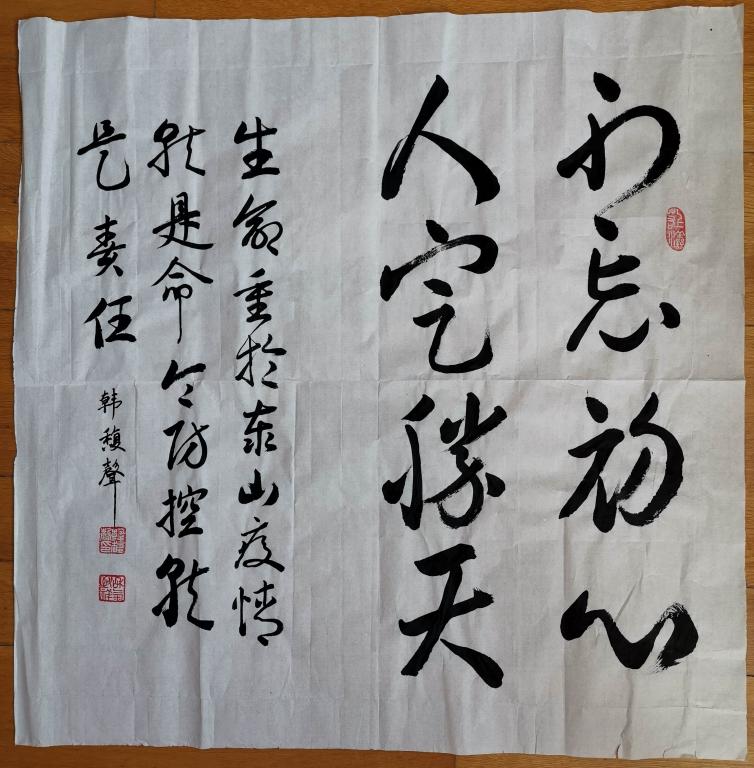 不忘初心
人定勝天
生命重於泰山疫情
就是命令防控就
是责任
韩馥聲